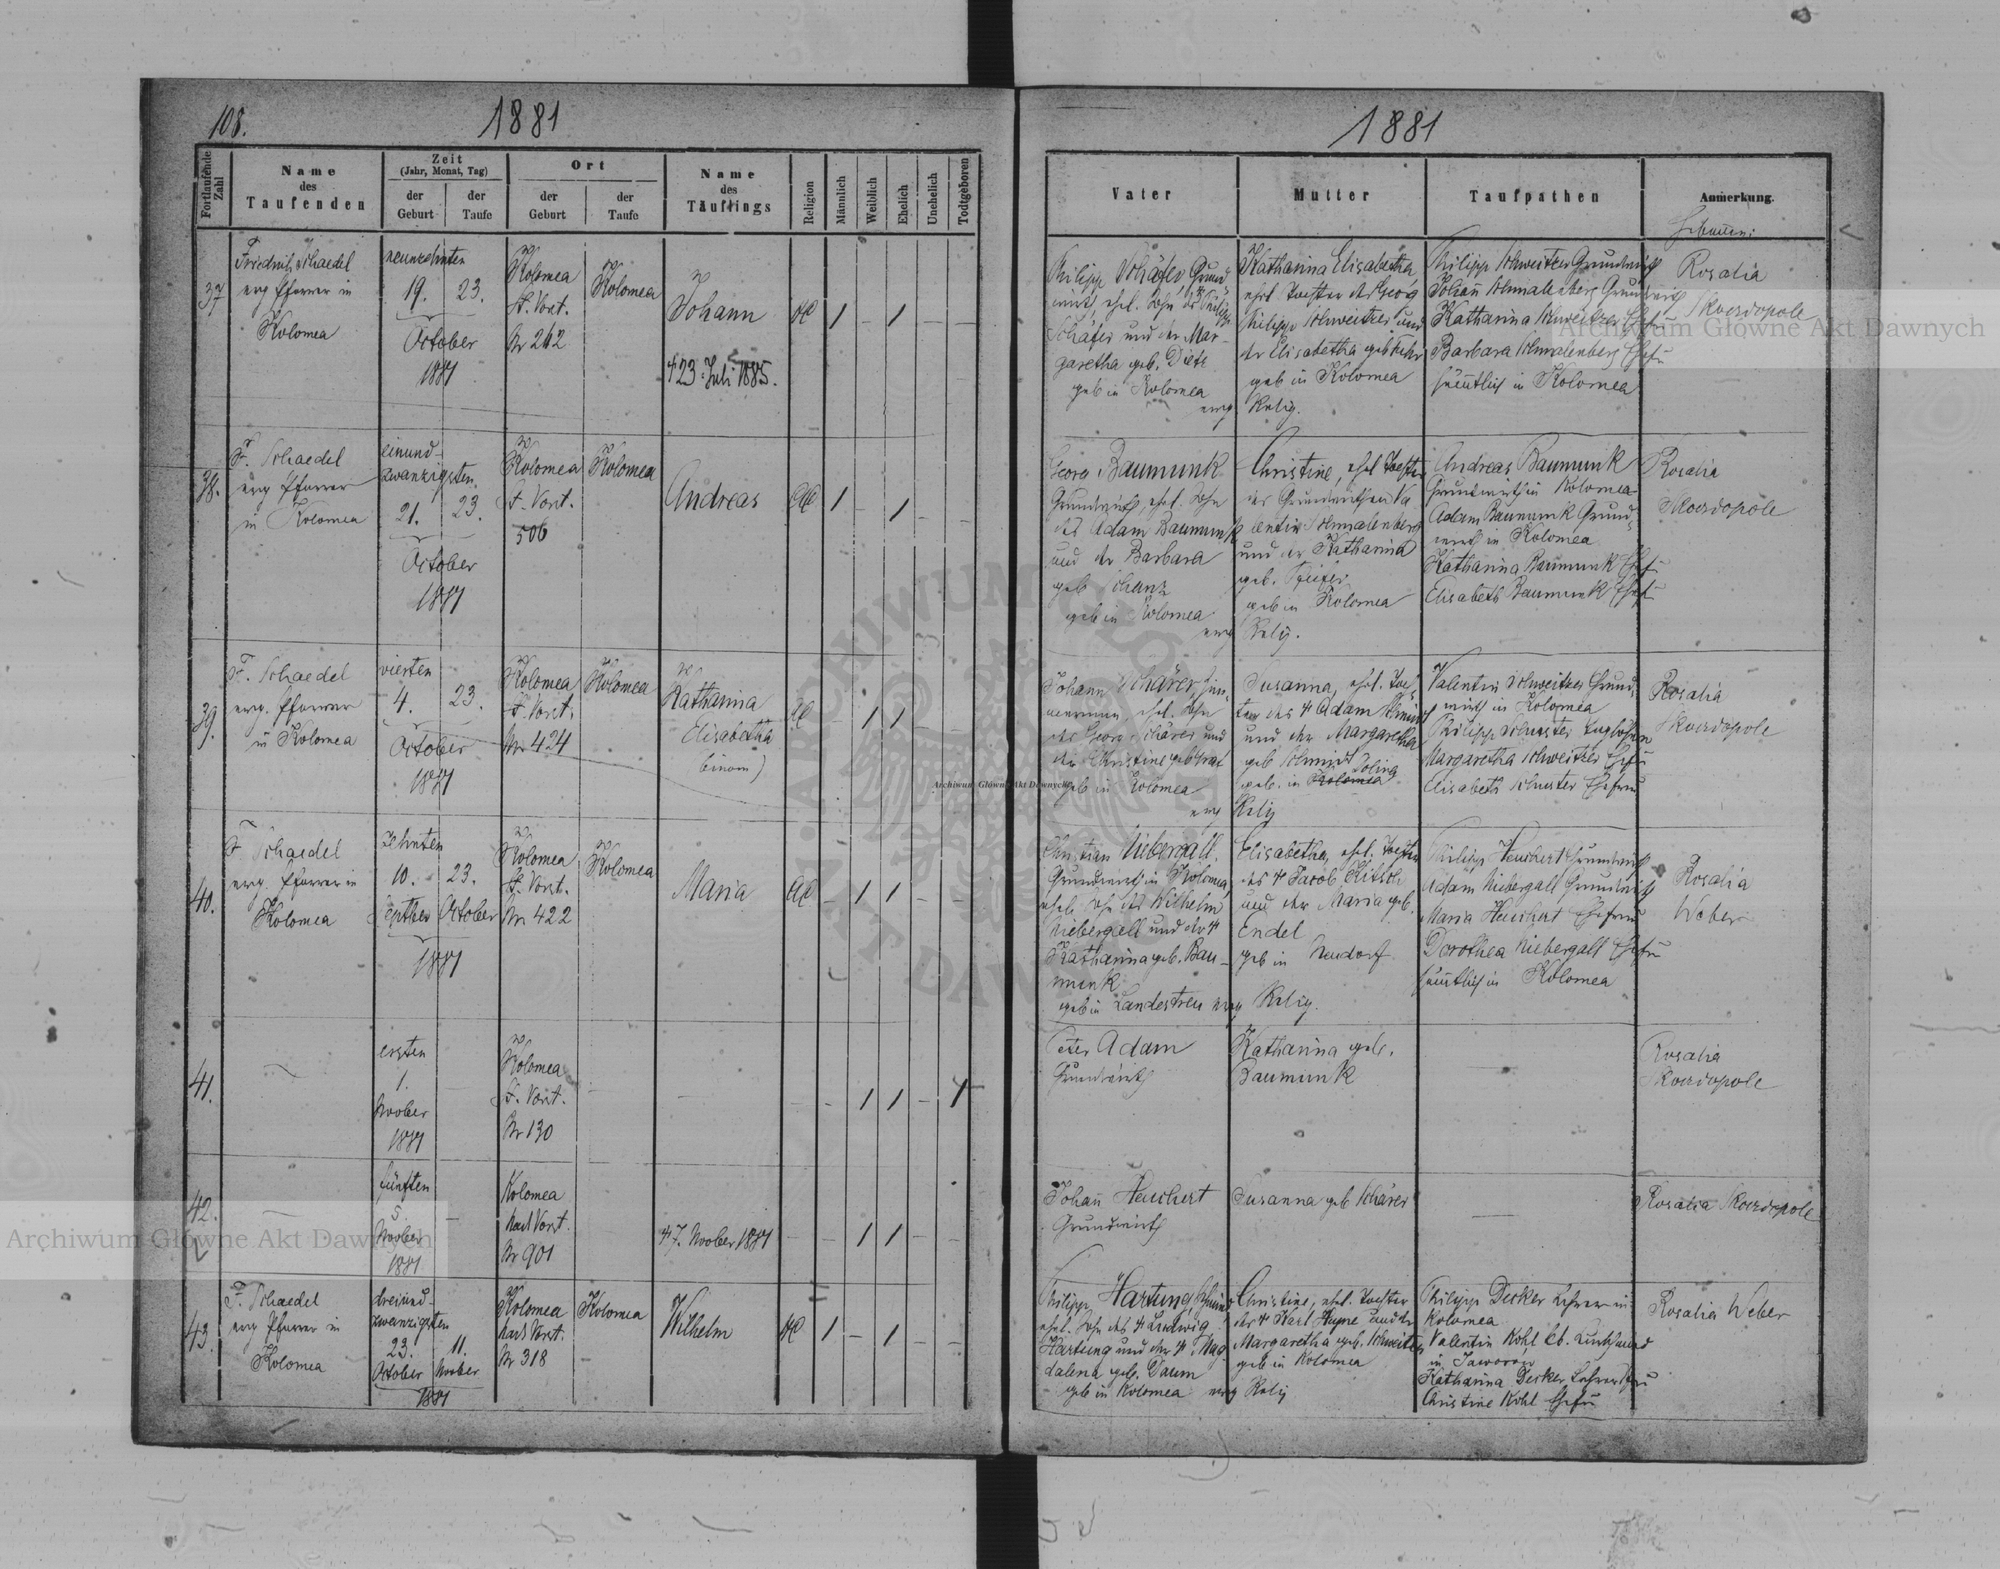 108.
1881
1881
Fortlaufende Zahl
Name
des
Taufenden
Zeit
(Jahr, Monat, Tag)
der
Geburt
der
Taufe
Ort
der
Geburt
der
Taufe
Name
des
Täuflings
Religion
Männlich
Weiblich
Ehelich
Unehelich
Todtgeboren
Vater
Mutter
Taufpathen
Anmerkung.
37
Friedrich Schaedel
evg Pfarrer in
Kolomea
neunzehnten
19. 23.
October
1881
Kolomea
Nr 242
Kolomea
Johann
† 23. Juli 1885.
1 – 1 – –
Philipp Schäfer, Grund-
wirt, ehel. Sohn des Philipp
Schäfer und der Mar-
garetha geb. Dietz
geb in Kolomea
evg Relig.
Katharina Elisabetha,
ehel. Tochter des Georg
Philipp Schweitzer und
der Elisabetha geb
geb in Kolomea
Philipp Schweitzer Grundwirth
Johañ Schmalenberg Grundwirth
Katharina Schweitzer Ehefr
Barbara Schmalenberg Ehefr
säm̃tlich in Kolomea
Rosalia
Skordopole
38.
F. Schaedel
evg Pfarrer
in Kolomea
einund-
zwanzigsten
21. 23.
October
1881
Kolomea
Vorst.
506
Kolomea
Andreas
1 – 1 – –
Georg Baumunk
Grundwirth, ehel. Sohn
des Adam Baumunk
und der Barbara
geb Schanz
geb in Kolomea
evg Relig.
Christine, ehel Tochter
des Grundwirthen Va
lentin Schmalenberg
und der Katharina
geb. Pfeifer
geb in Kolomea
Andreas Baumunk
Grundwirth in Kolomea
Adam Baumunk Grund-
wirth in Kolomea
Katharina Baumunk Ehefr
Elisabeth Baumunk Ehefr
Rosalia
Skordopole
39.
F. Schaedel
evg. Pfarrer
in Kolomea
vierten
4. 23.
October
1881
Kolomea
Vorst.
Nr 424
Kolomea
Katharina
Elisabetha
(binom)
– 1 1 – –
Johann Schärer, Zim-
mermann, ehel. Sohn
des Georg Schärer und
der Christine geb
geb in Kolomea
evg Relig
Susanna, ehel. Toch-
ter des † Adam Schmidt
und der Margaretha
geb Schmidt
geb. in Kolomea
Valentin Schweitzer Grund-
wirth in Kolomea
Philipp Schuster
Margaretha Schweitzer Ehefr
Elisabeth Schuster Ehefrau
Rosalia
Skordopole
40.
F. Schaedel
evg. Pfarrer in
Kolomea
zehnten
10. 23.
Septber October
1881
Kolomea
Vorst.
Nr 422
Kolomea
Maria
– 1 1 – –
Christian Niebergall,
Grundwirth in Kolomea,
ehel. Sohn des Wilhelm
Niebergall und der †
Katharina geb. Bau-
munk
geb in Landestreu evg Relig.
Elisabetha, ehel. Tochter
des † Jacob
und der Maria geb.
Endel
geb in Neudorf
Philipp Heuchert Grundwirth
Adam Niebergall Grundwirth
Maria Heuchert Ehefrau
Dorothea Niebergall Ehefr
säm̃tlich in Kolomea
Rosalia
Weber
41.
ersten
1.
Novber
1881
Kolomea
Vorst.
Nr 130
– – 1 1 – 1
Peter Adam
Grundwirth
Katharina geb.
Baumunk
Rosalia
Skordopole
42.
fünften
5
Novber
1881
Kolomea
Vorst.
Nr 901
† 7. Novber 1881
– – 1 1 – –
Johañ Heuchert
Grundwirth
Susanna geb Schärer
Rosalia Skordopole
43.
F. Schaedel
evg Pfarrer in
Kolomea
dreiund-
zwanzigsten
23. 11.
October Novber
1881
Kolomea
Vorst.
Nr 318
Kolomea
Wilhelm
1 – 1 – –
Philipp Hartung,
ehel. Sohn des † Ludwig
Hartung und der † Mag-
dalena geb. Daum
geb in Kolomea evg Relig
Christine, ehel. Tochter
des † Karl und der
Margaretha geb. Schweitzer
geb in Kolomea
Philipp Decker Lehrer in
Kolomea
Valentin Kohl
in Jaworow
Katharina Decker, Lehrersfrau
Christine Kohl Ehefr
Rosalia Weber
Archiwum Główne Akt Dawnych
Archiwum Główne Akt Dawnych
Archiwum Główne Akt Dawnych